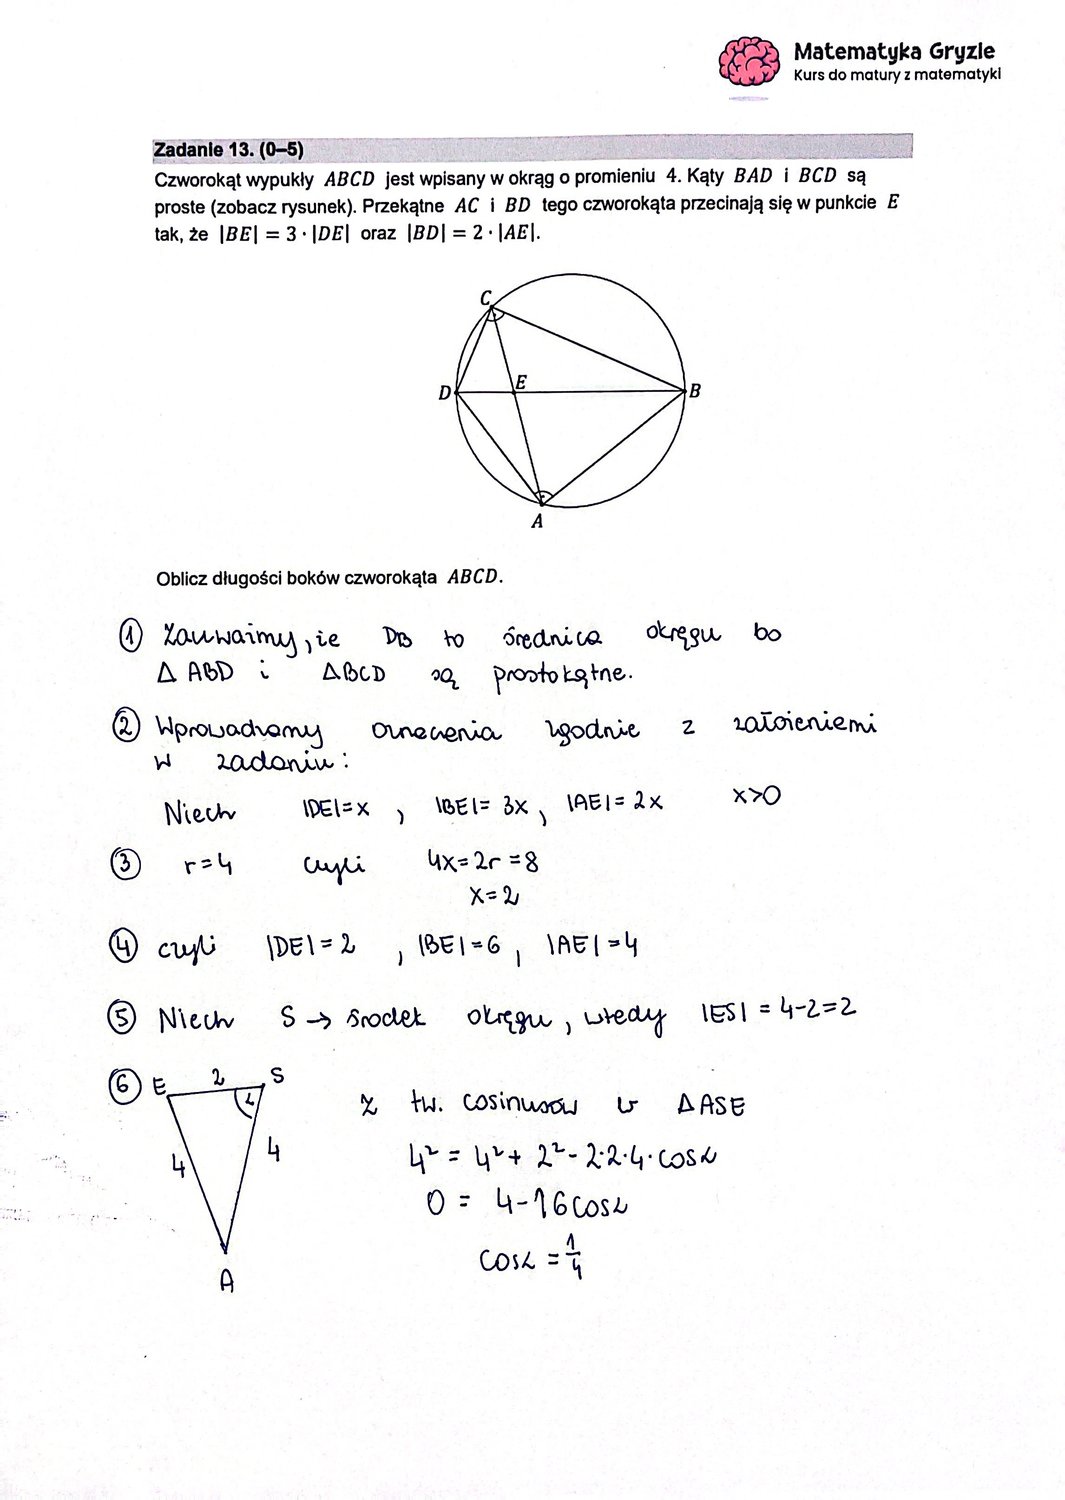 Matematyka Gryzie
Kurs do matury z matematyki
Zadanie 13. (0–5)
Czworokąt wypukły ABCD jest wpisany w okrąg o promieniu 4. Kąty BAD i BCD są
proste (zobacz rysunek). Przekątne AC i BD tego czworokąta przecinają się w punkcie E
tak, że |BE| = 3 · |DE| oraz |BD| = 2 · |AE|.
C
D
E
B
A
Oblicz długości boków czworokąta ABCD.
① Zauważmy, że DB to średnica okręgu bo
Δ ABD i ΔBCD są prostokątne.
② Wprowadzamy oznaczenia zgodnie z założeniemi
w zadaniu:
Niech |DE|=x , |BE|= 3x, |AE|= 2x x>0
③ r=4 czyli 4x=2r=8
x=2
④ czyli |DE|=2 , |BE|=6 , |AE|=4
⑤ Niech S → środek okręgu, wtedy |ES| = 4-2=2
⑥ E 2 S
α
4 4
A
z tw. cosinusów w ΔASE
4² = 4² + 2² - 2·2·4·cosα
0 = 4-16cosα
cosα = 1/4